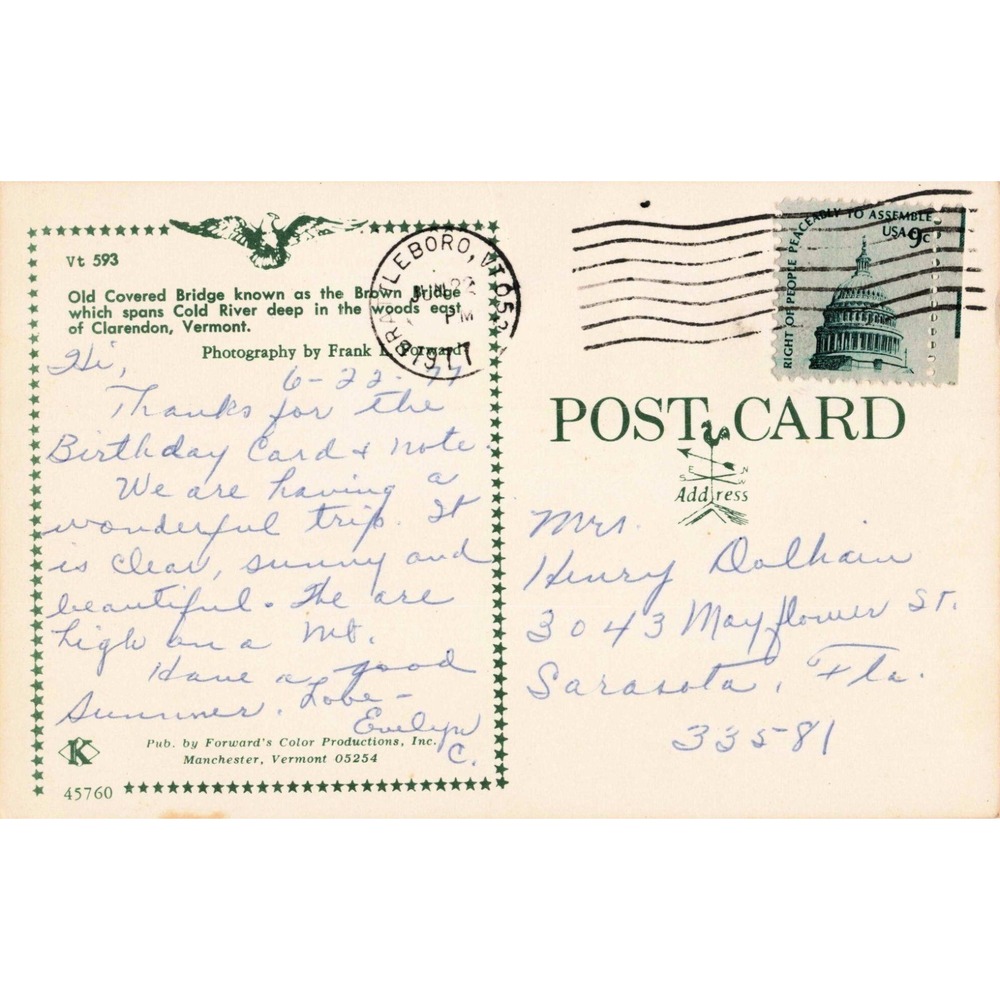 Vt 593
Old Covered Bridge known as the Brown Bridge
which spans Cold River deep in the woods east
of Clarendon, Vermont.
Photography by Frank L. Forward
Hi,
6-22-77
Thanks for the
Birthday Card & note.
We are having a
wonderful trip. It
is clear, sunny and
beautiful. The are
high on a Mt.
Have a good
Summer. Love-
Evelyn
C.
K
Pub. by Forward's Color Productions, Inc.
Manchester, Vermont 05254
45760
BRATTLEBORO, VT 053
JUN 22
PM
1977
RIGHT OF PEOPLE PEACEABLY TO ASSEMBLE
USA 9c
POST CARD
N
E
S
W
Address
Mrs.
Henry Dalhain
3043 Mayflower St.
Sarasota, Fla.
33581